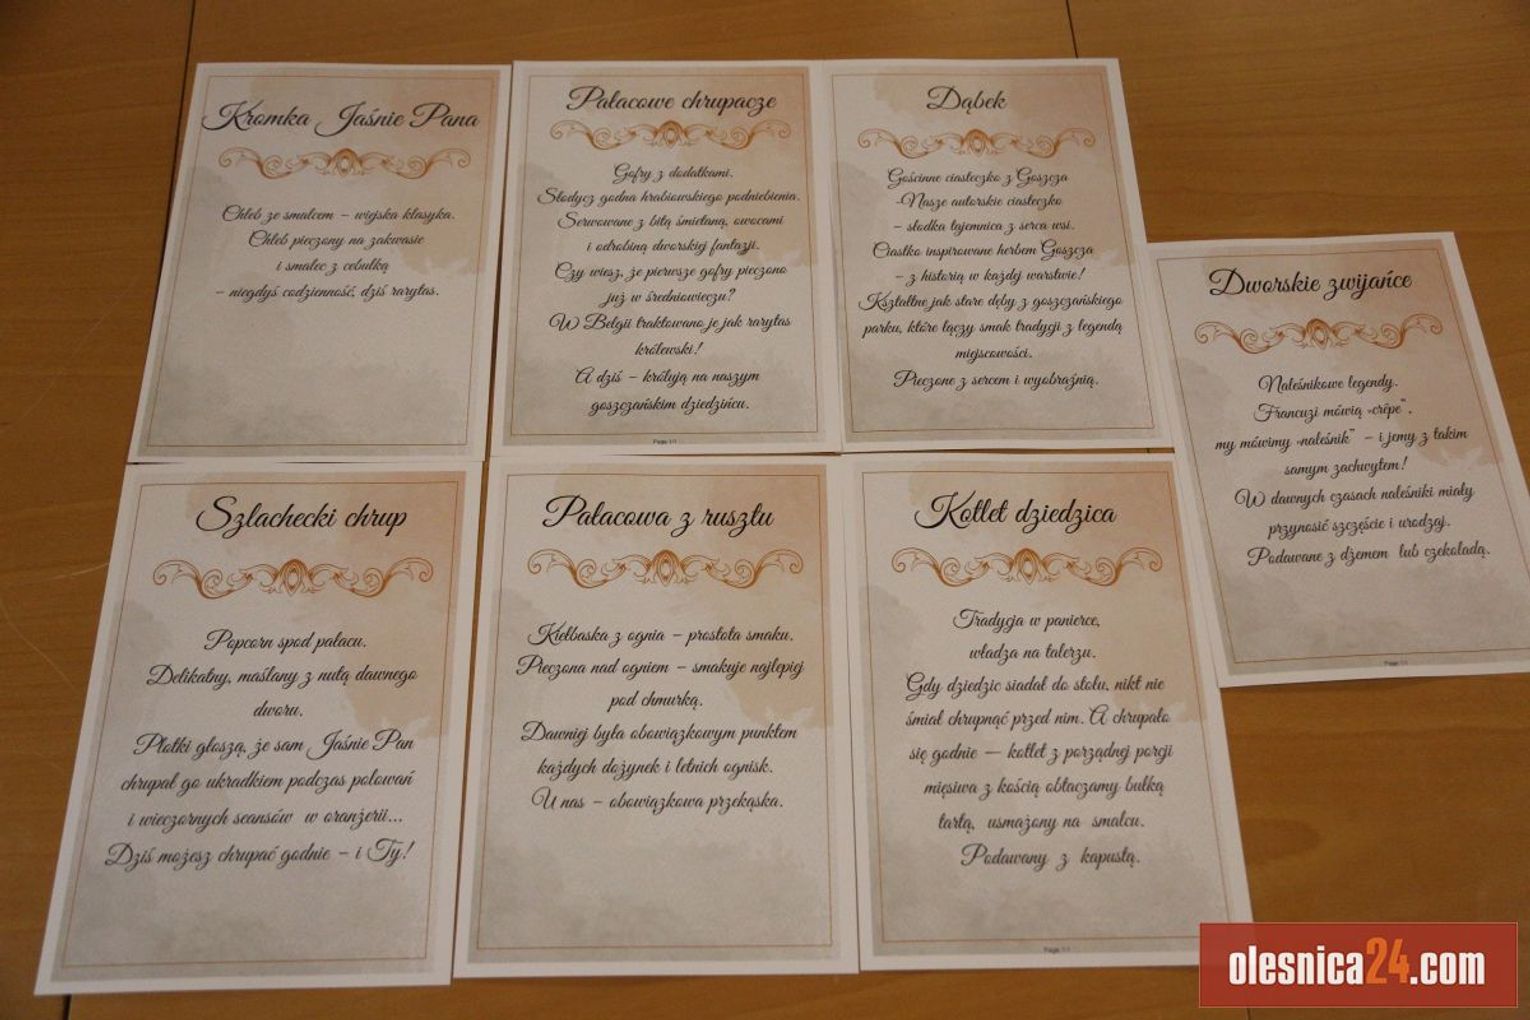 Kromka Jaśnie Pana
Chleb ze smalcem – wiejska klasyka.
Chleb pieczony na zakwasie
i smalec z cebulką
– niegdyś codzienność, dziś rarytas.
Pałacowe chrupacze
Gofry z dodatkami.
Słodycz godna hrabiowskiego podniebienia.
Serwowane z bitą śmietaną, owocami
i odrobiną dworskiej fantazji.
Czy wiesz, że pierwsze gofry pieczono
już w średniowieczu?
W Belgii traktowano je jak rarytas
królewski!
A dziś – królują na naszym
goszczańskim dziedzińcu.
Page 1/1
Dąbek
Gościnne ciasteczko z Goszcza
-Nasze autorskie ciasteczko
– słodka tajemnica z serca wsi.
Ciastko inspirowane herbem Goszcza
– z historią w każdej warstwie!
Kształtne jak stare dęby z goszczańskiego
parku, które łączy smak tradycji z legendą
miejscowości.
Pieczone z sercem i wyobraźnią.
Dworskie zwijańce
Naleśnikowe legendy.
Francuzi mówią „crêpe”,
my mówimy „naleśnik” – i jemy z takim
samym zachwytem!
W dawnych czasach naleśniki miały
przynosić szczęście i urodzaj.
Podawane z dżemem lub czekoladą.
Page 1/1
Szlachecki chrup
Popcorn spod pałacu.
Delikatny, maślany z nutą dawnego
dworu.
Plotki głoszą, że sam Jaśnie Pan
chrupał go ukradkiem podczas polowań
i wieczornych seansów w oranżerii...
Dziś możesz chrupać godnie – i Ty!
Pałacowa z rusztu
Kiełbaska z ognia – prostota smaku.
Pieczona nad ogniem – smakuje najlepiej
pod chmurką.
Dawniej była obowiązkowym punktem
każdych dożynek i letnich ognisk.
U nas – obowiązkowa przekąska.
Kotlet dziedzica
Tradycja w panierce,
władza na talerzu.
Gdy dziedzic siadał do stołu, nikt nie
śmiał chrupnąć przed nim. A chrupało
się godnie — kotlet z porządnej porcji
mięsiwa z kością obtaczamy bułką
tartą, usmażony na smalcu.
Podawany z kapustą.
Page 1/1
olesnica24.com